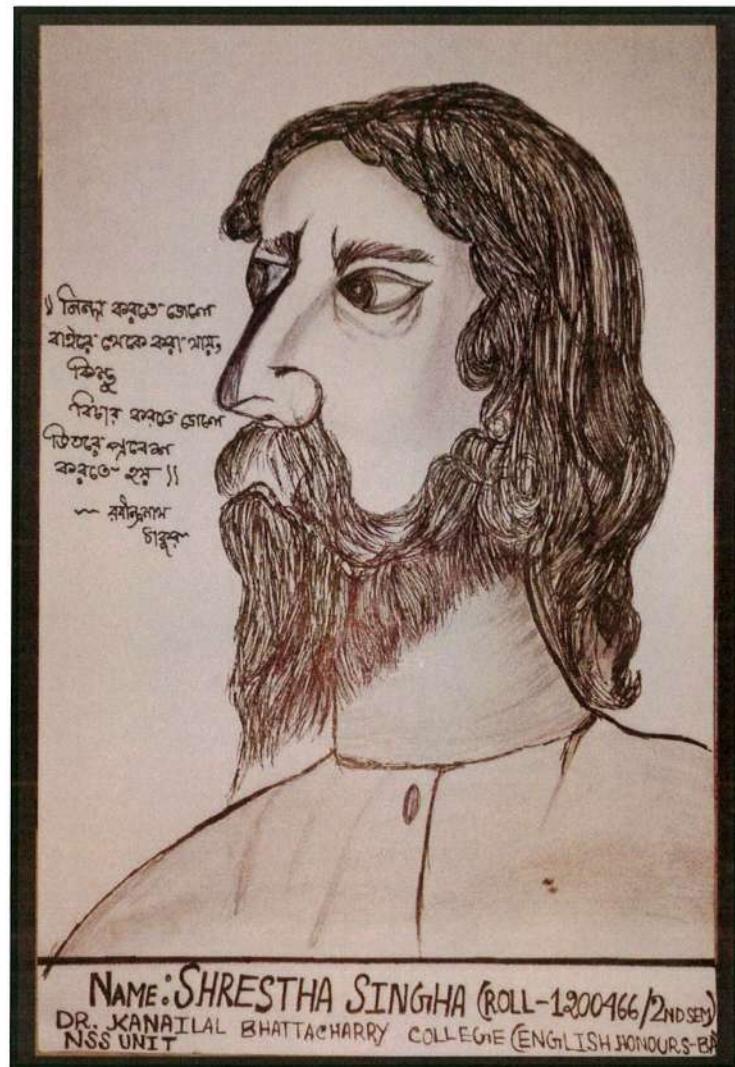 ॥ নিন্দা করতে গেলে
বাইরে থেকে করা যায়,
কিন্তু
বিচার করতে গেলে
ভিতরে প্রবেশ
করতে হয় ॥
~ রবীন্দ্রনাথ
ঠাকুর
NAME: SHRESTHA SINGHA (ROLL-1200466/2ND SEM)
DR. KANAILAL BHATTACHARRY COLLEGE (ENGLISH HONOURS-BA
NSS UNIT